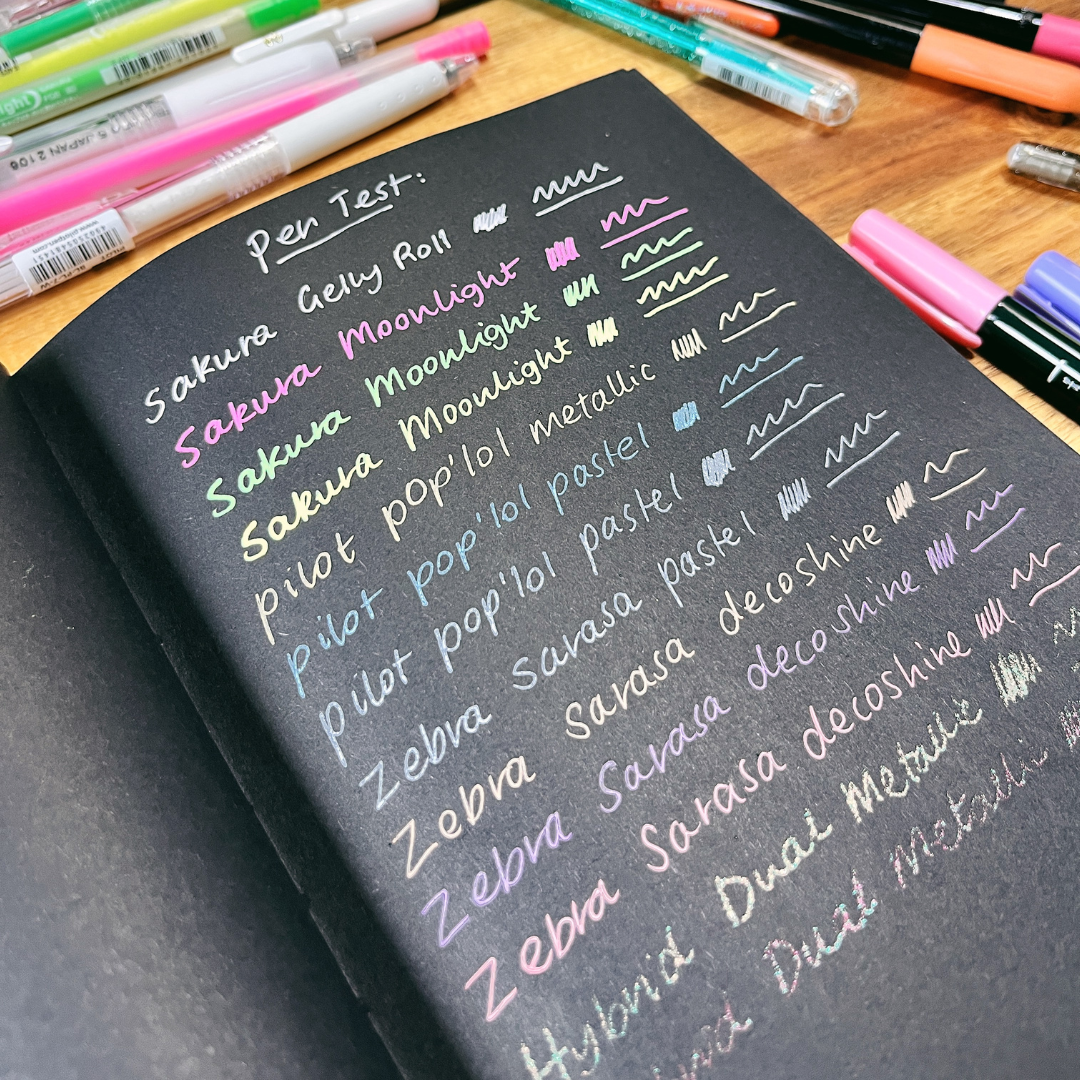 Pen Test:
Sakura Gelly Roll
Sakura Moonlight
Sakura Moonlight
Sakura Moonlight
pilot pop'lol metallic
pilot pop'lol pastel
pilot pop'lol pastel
Zebra sarasa pastel
Zebra sarasa decoshine
Zebra Sarasa decoshine
Zebra Sarasa decoshine
Hybrid Dual Metallic
Dual Metallic
JAPAN 2106